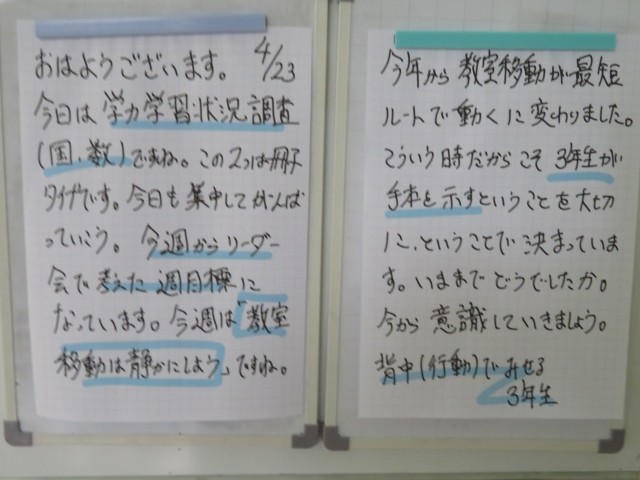 おはようございます。 4/23
今日は学力学習状況調査
(国、数)ですね。この2つは冊子
タイプです。今日も集中してがんば
っていこう。今週からリーダー
会で考えた週目標に
なっています。今週は「教室
移動は静かにしよう」ですね。
今年から教室移動が最短
ルートで動くに変わりました。
こういう時だからこそ3年生が
手本を示すということを大切
に、ということで決まっていま
す。いままでどうでしたか。
今から意識していきましょう。
背中(行動)でみせる
3年生